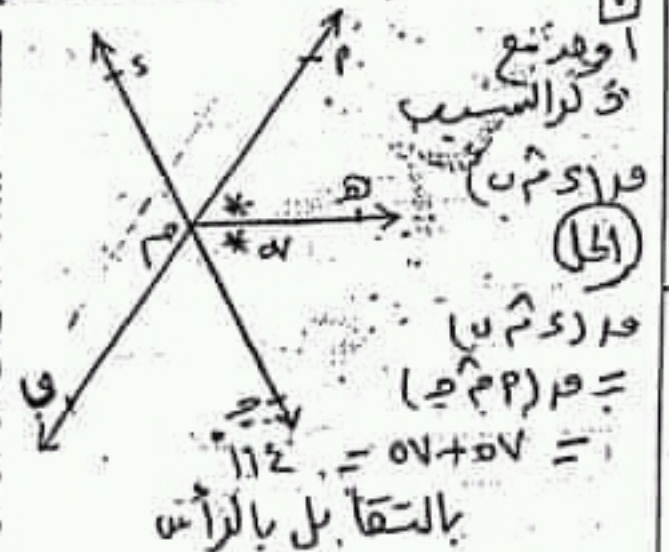 ١ وجد مع
ذكر السبب
ق (د م̂ ب)
الحل
ق (د م̂ ب)
= ق (أ م̂ جـ)
= ٥٧ + ٥٧ = ١١٤
بالتقابل بالرأس
د
أ
هـ
م
٥٧
ب
جـ